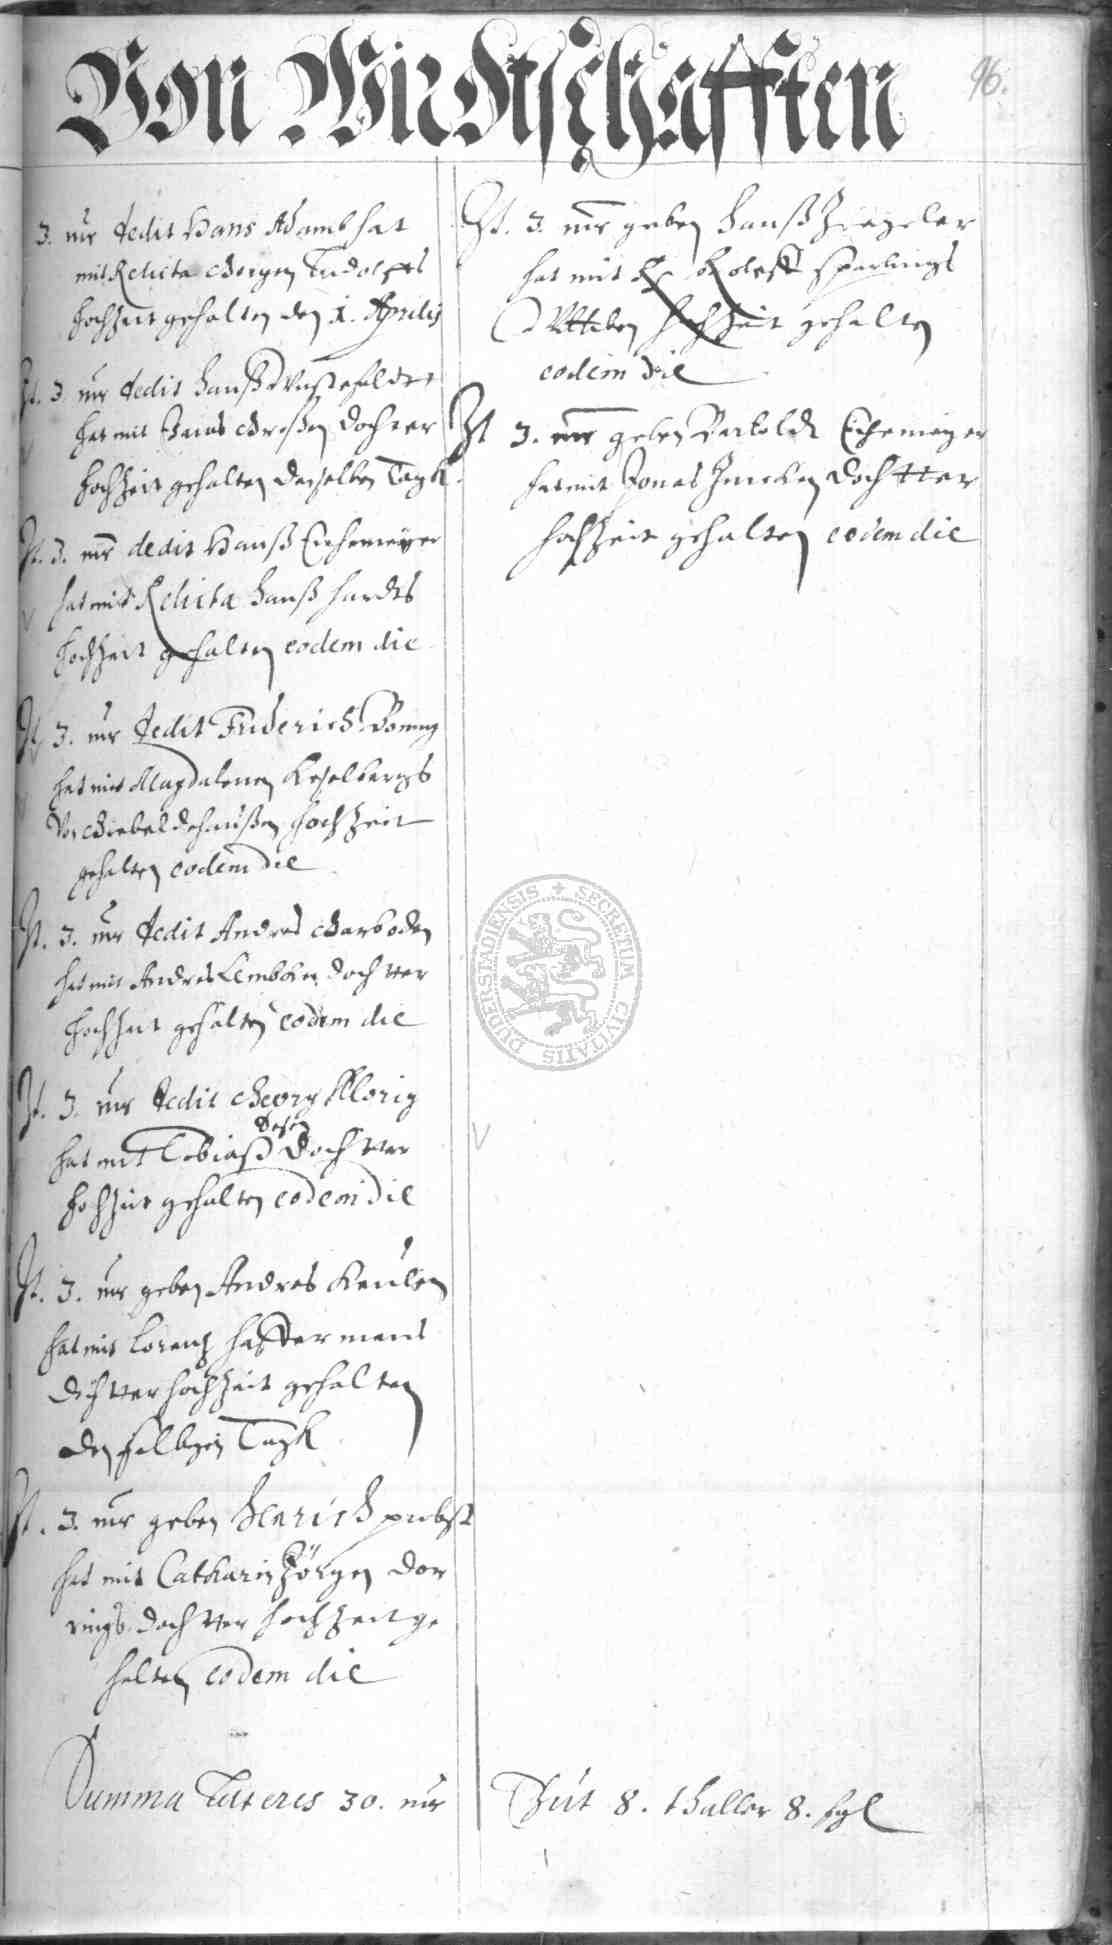 Von Wirdtschafften
96.
3. mr dedit Hans Adamb hat
mit Relicta Georgen Ludolffs
hochzeit gehalten den 1. Aprilis
It. 3 mr dedit Hanß
hat mit Großen dochter
hochzeit gehalten denselben Tagk
It. 3. mr dedit Hanß Eichemeyer
hat mit Relicta Hanß Hardts
hochzeit gehalten eodem die
It. 3. mr dedit Friderich Boning
hat mit Magdalenen Keselbergs
Von Giebeldehaußen hochzeit
gehalten eodem die
It. 3. mr dedit Andres Garboden
hat mit Andres Lembken dochtter
hochzeit gehalten eodem die
It. 3. mr dedit Georg Klorig
hat mit Tobiaß dochtter
hochzeit gehalten eodem die
It. 3. mr geben Andres Keulen
hat mit Lorentz Haffermans
dochtter hochzeit gehalten
den selbigen Tagk
It. 3. mr geben Henrich pabst
hat mit Catharin Jörgen Dor
rings dochtter hochzeit ge
halten eodem die
Summa Lateris 30. mr
It. 3. mr geben Hanß Ziegeler
hat mit Sparlings
Wittiben hochzeit gehalten
eodem die
It 3. mr geben Bartoldt Eichemeyer
hat mit Jonas dochtter
hochzeit gehalten eodem die
Thut 8. thaller 8. sgl
SECRETUM CIVITATIS DUDERSTADIENSIS